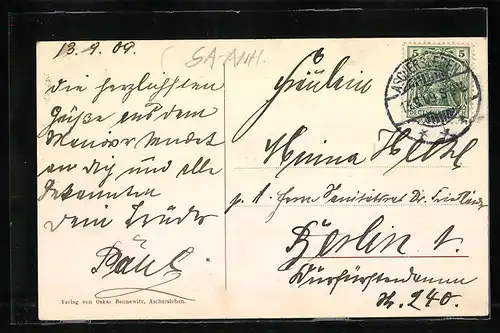 13.9.09.
SA-ANH.
Die herzlichsten
Grüße aus dem
Manöver sendet
an Dig und alle
Bekannten
Dein Bruder
Paul
Verlag von Oskar Bennewitz, Aschersleben.
5 5
ASCHERSLEBEN
Fräulein
Minna
p. A. Herrn Sanitätsrat Dr. Friedländer
Berlin
Kurfürstendamm
No. 240.